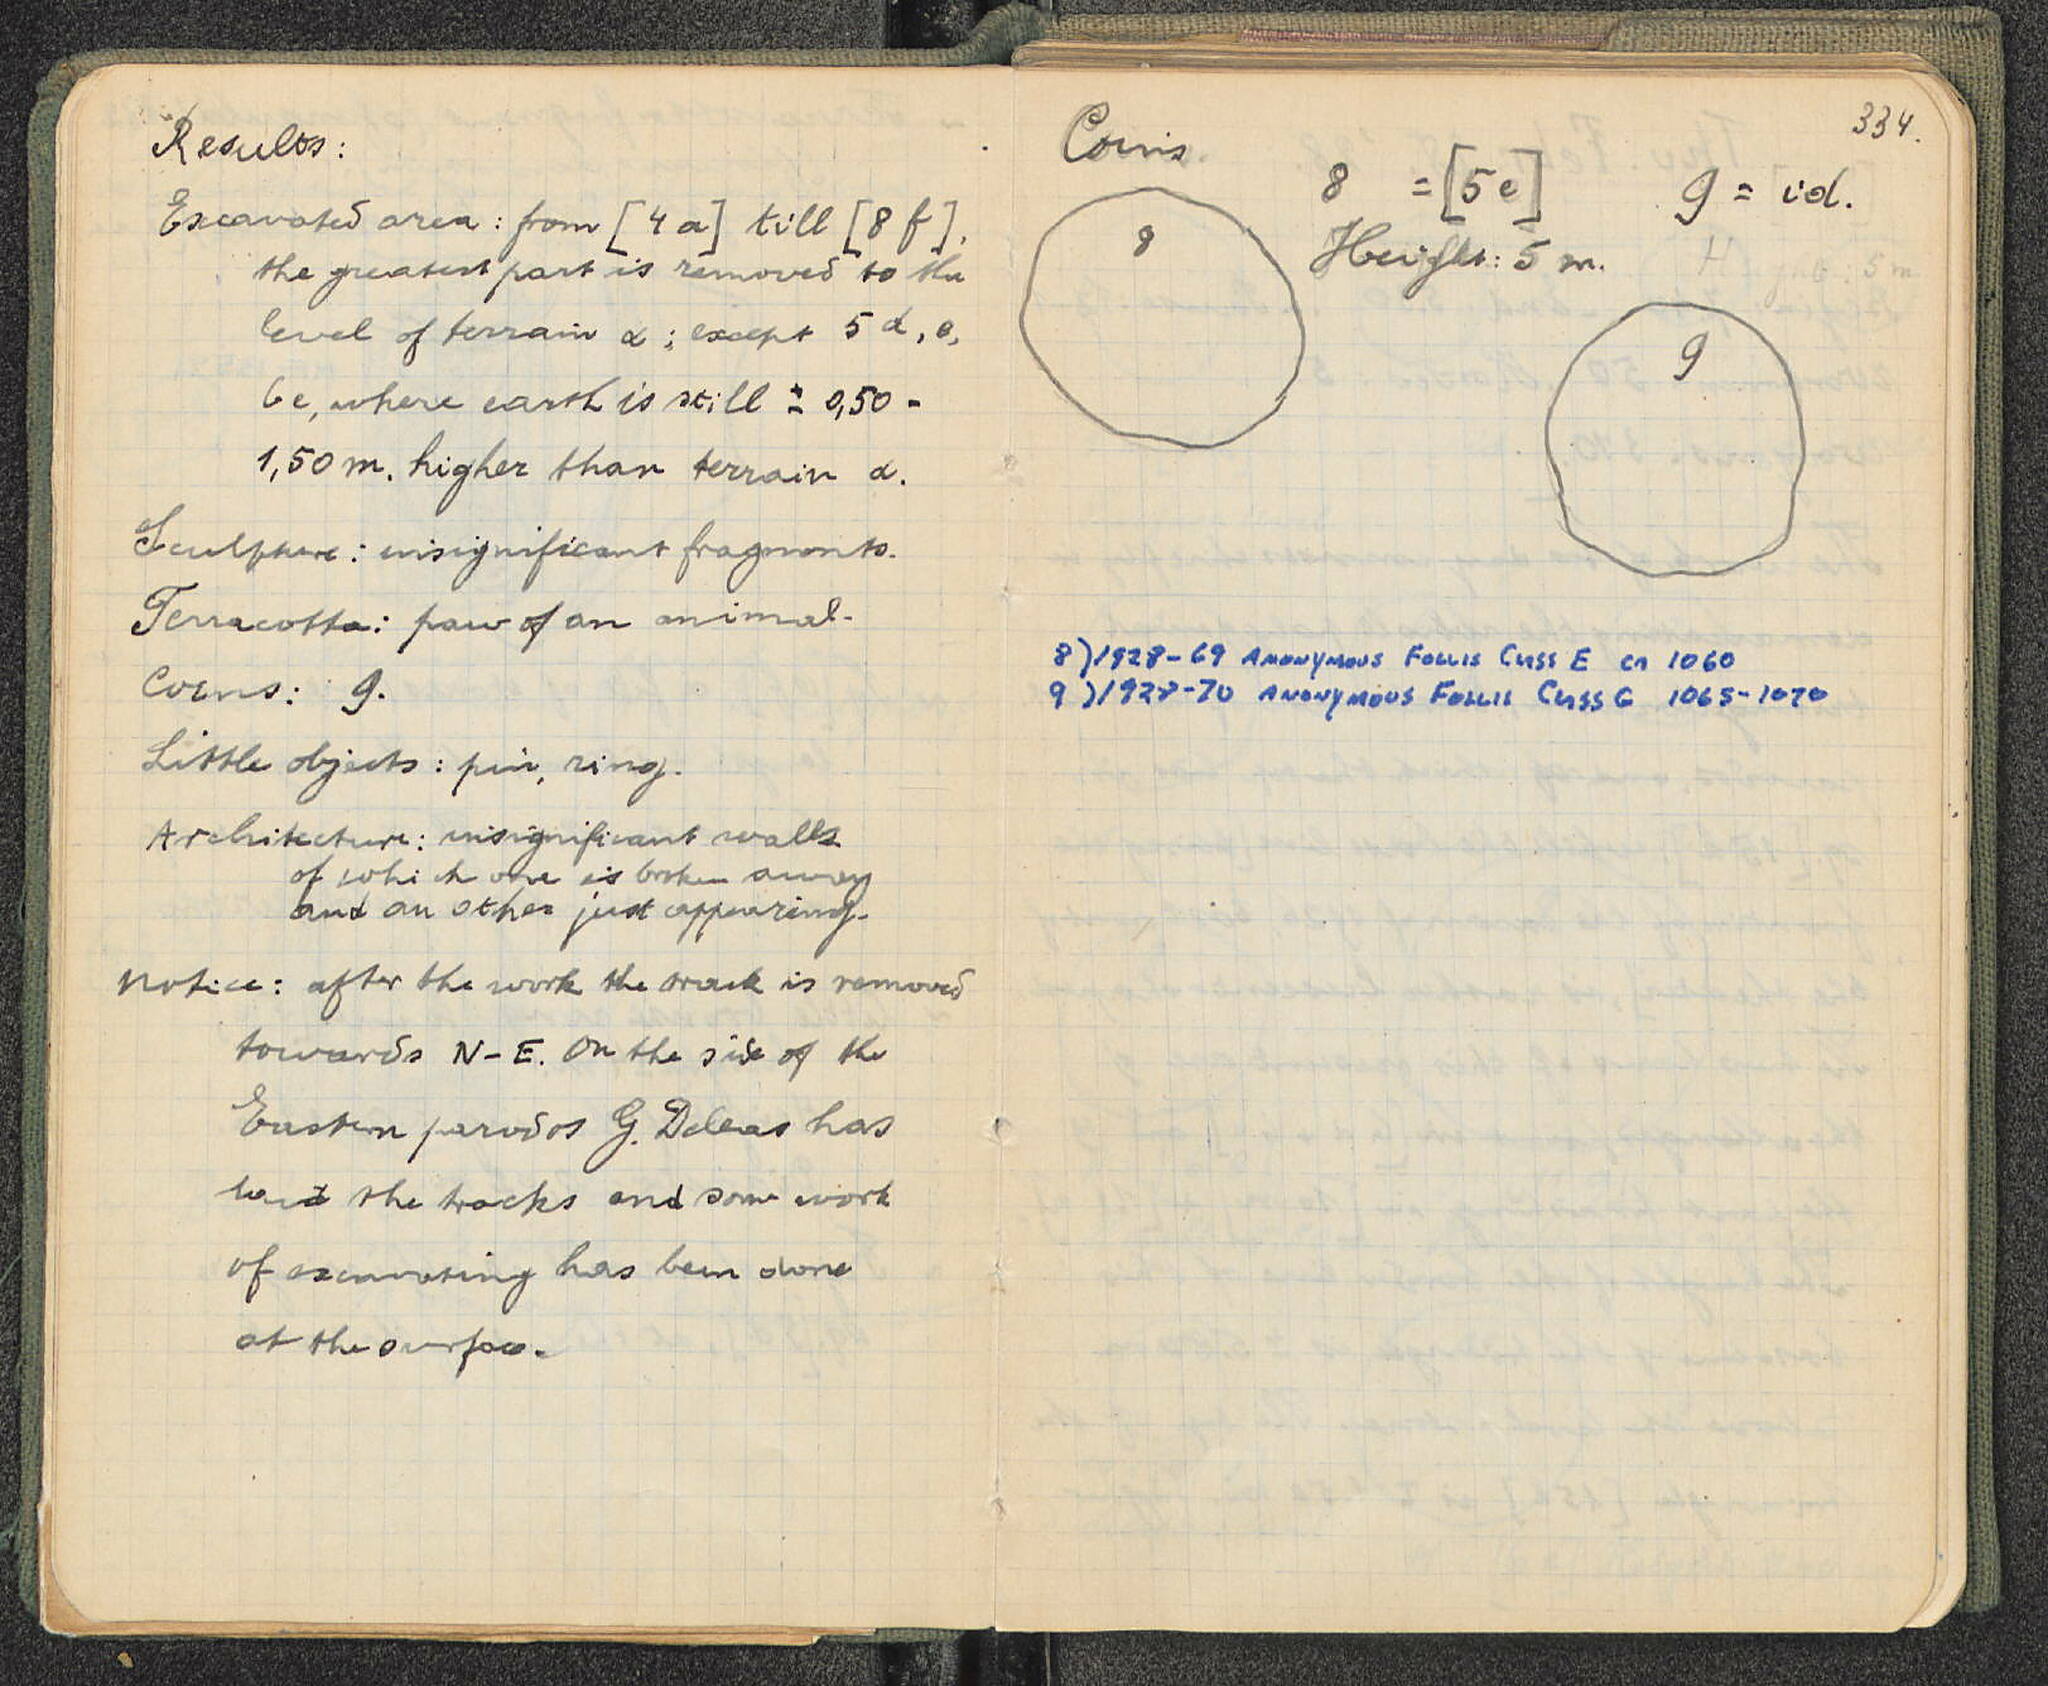 Results:
Excavated area: from [4a] till [8f],
the greatest part is removed to the
level of terrain α; except 5d, e,
6e, where earth is still ± 0,50 -
1,50 m. higher than terrain α.
Sculpture: insignificant fragments.
Terracotta: paw of an animal.
Coins: 9.
Little objects: pin, ring.
Architecture: insignificant walls
of which one is broken away
and an other just appearing.
Notice: after the work the track is removed
towards N-E. On the side of the
Eastern parodos G. Deleas has
laid the tracks and some work
of excavating has been done
at the surface.
334.
Coins.
8 = [5e] 9 = id.
Height: 5 m.
8
9
8) 1928-69 ANONYMOUS FOLLIS CLASS E CA 1060
9) 1928-70 ANONYMOUS FOLLIS CLASS G 1065-1070